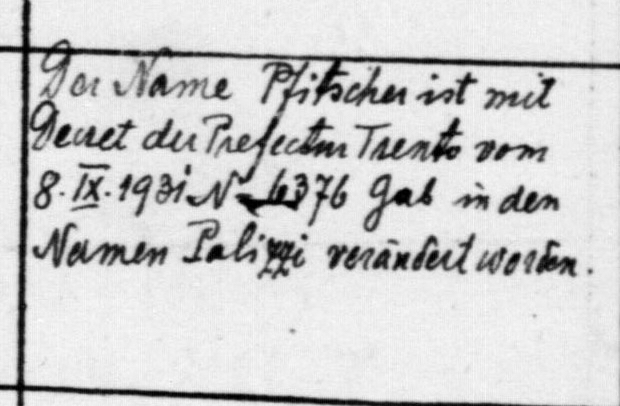 Der Name Pfitscher ist mit
Decret der Prefectur Trento vom
8. IX. 1931 N 6376 Gab in den
Namen Palizzi verändert worden.